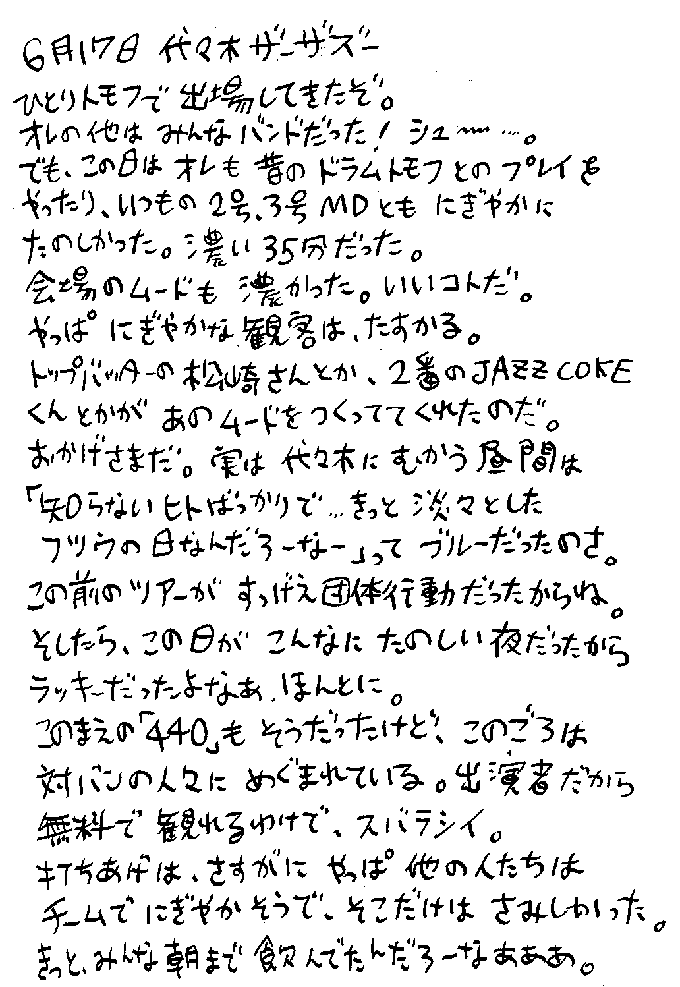 6月17日 代々木ザーザズー
ひとりトモフで出場してきたぞ。
オレの他はみんなバンドだった! シュ〜〜…。
でも、この日はオレも昔のドラムトモフとのプレイを
やったり、いつもの2号、3号MDともにぎやかに
たのしかった。濃い35分だった。
会場のムードも濃かった。いいコトだ。
やっぱにぎやかな観客は、たすかる。
トップバッターの松崎さんとか、2番のJAZZ COKE
くんとかがあのムードをつくっててくれたのだ。
おかげさまだ。実は代々木にむかう昼間は
「知らないヒトばっかりで…きっと淡々とした
フツウの日なんだろーなー」ってブルーだったのさ。
この前のツアーがすっげえ団体行動だったからね。
そしたら、この日がこんなにたのしい夜だったから
ラッキーだったよなあ、ほんとに。
このまえの「440」もそうだったけど、このごろは
対バンの人々にめぐまれている。出演者だから
無料で観れるわけで、スバラシイ。
打ちあげは、さすがにやっぱ他の人たちは
チームでにぎやかそうで、そこだけはさみしかった。
きっと、みんな朝まで飲んでたんだろーなあああ。